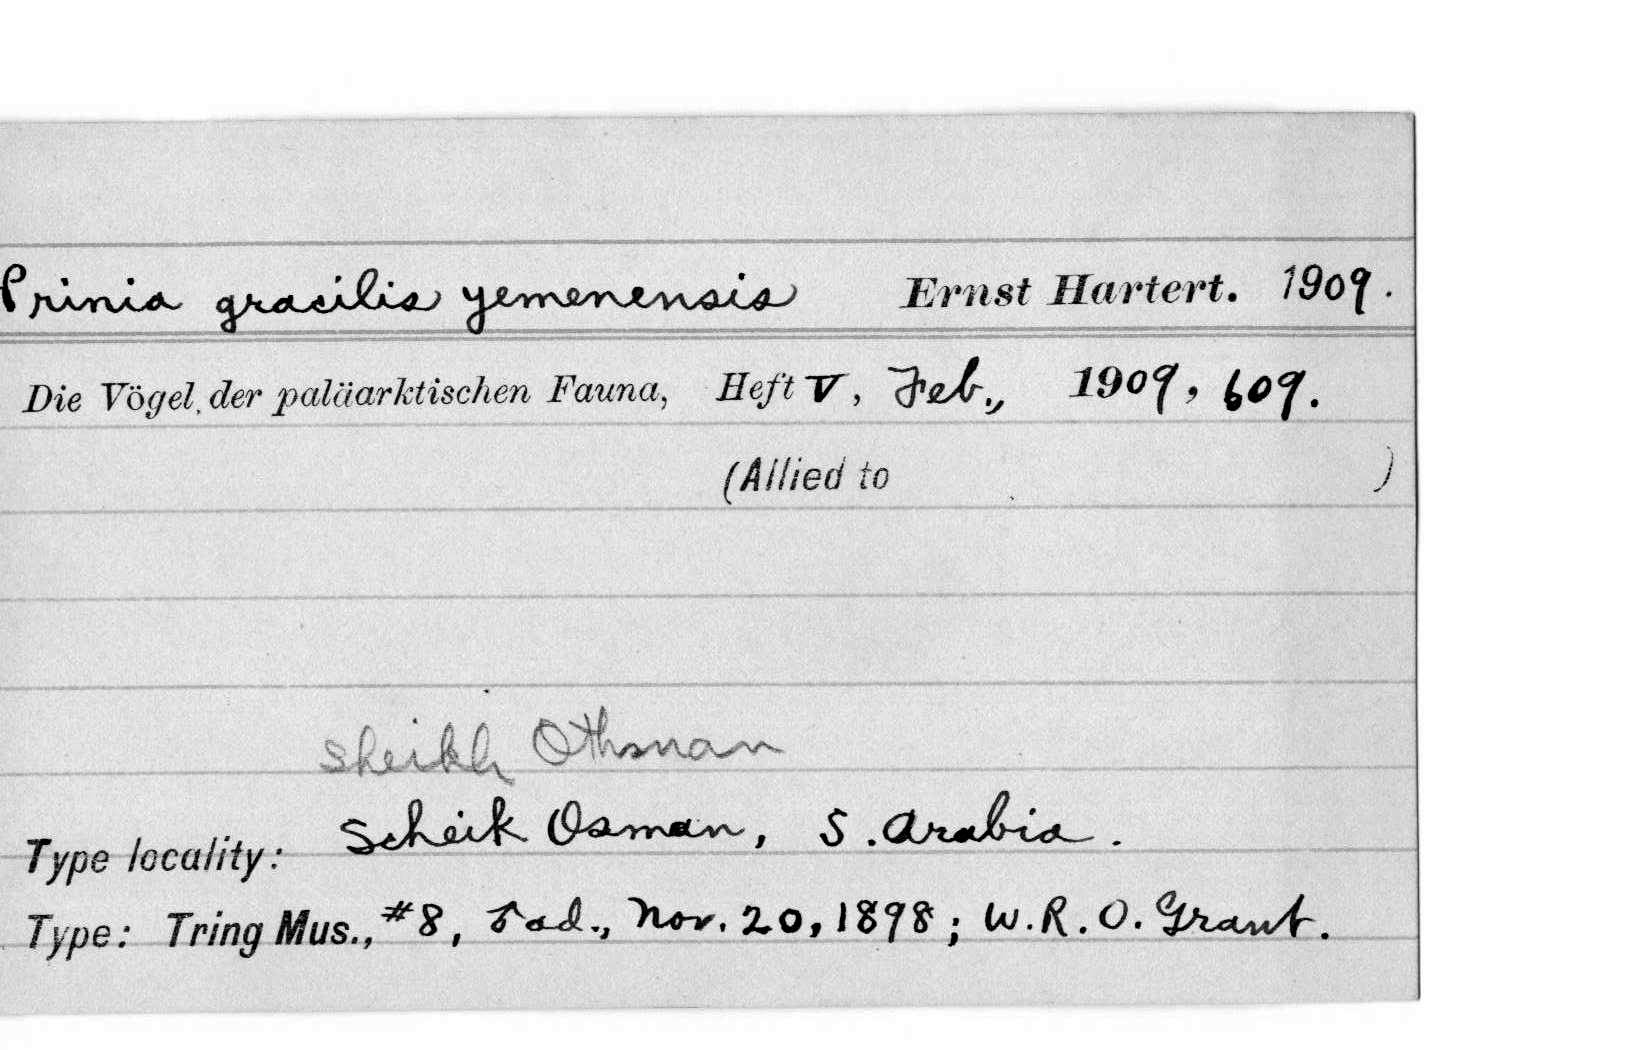 Prinia gracilis yemenensis Ernst Hartert. 1909.
Die Vögel der paläarktischen Fauna, Heft V, Feb., 1909, 609.
(Allied to )
Sheikh Othman
Scheik Osman, S. Arabia.
Type locality:
Type: Tring Mus., #8, ad., Nov. 20, 1898; W.R.O. Grant.